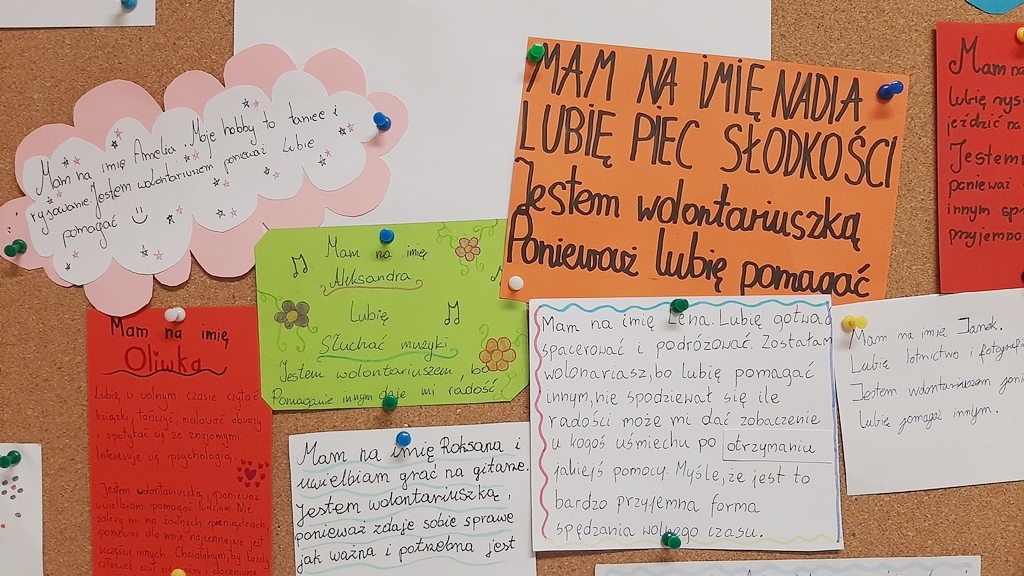 Mam na imię Amelia. Moje hobby to taniec i
rysowanie. Jestem wolontariuszem ponieważ lubię
pomagać
MAM NA IMIĘ NADIA
LUBIĘ PIEC SŁODKOŚCI
Jestem wolontariuszką
Ponieważ lubię pomagać
Mam na
lubię rys
jeździć na
Jestem
ponieważ
innym spr
przyjemno
Mam na imię
Aleksandra
Lubię
Słuchać muzyki
Jestem wolontariuszem, bo
Pomaganie innym daje mi radość
Mam na imię
Oliwka
Lubię w wolnym czasie czytać
książki, tańczyć, malować obrazy
i spotykać się ze znajomymi.
Interesuję się psychologią.
Jestem wolontariuszką, ponieważ
uwielbiam pomagać ludziom. Nie
zależy mi na żadnych pieniądzach,
ponieważ dla mnie najcenniejsze jest
szczęście innych. Chciałabym, by każdy
człowiek czuł się
Mam na imię Roksana i
uwielbiam grać na gitarze.
Jestem wolontariuszką,
ponieważ zdaje sobie sprawę
jak ważna i potrzebna jest
Mam na imię Lena. Lubię gotwać
spacerować i podróżować. Zostałam
wolonariasz, bo lubię pomagać
innym, nie spodziewał się ile
radości może mi dać zobaczenie
u kogoś uśmiechu po otrzymaniu
jakiejś pomocy. Myślę, że jest to
bardzo przyjemna forma
spędzania wolnego czasu.
Mam na imię Janek.
Lubię lotnictwo i fotografi
Jestem wolontariuszem poni
lubię pomagać innym.